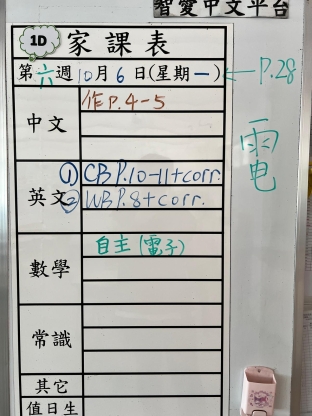 智愛中文平台
1D 家課表
第六週 10月6日(星期一) ← P.28
中文 作 P.4-5
電
英文 ① CB P.10-11+corr.
② WB P.8+corr.
數學 自主(電子)
常識
其它
值日生